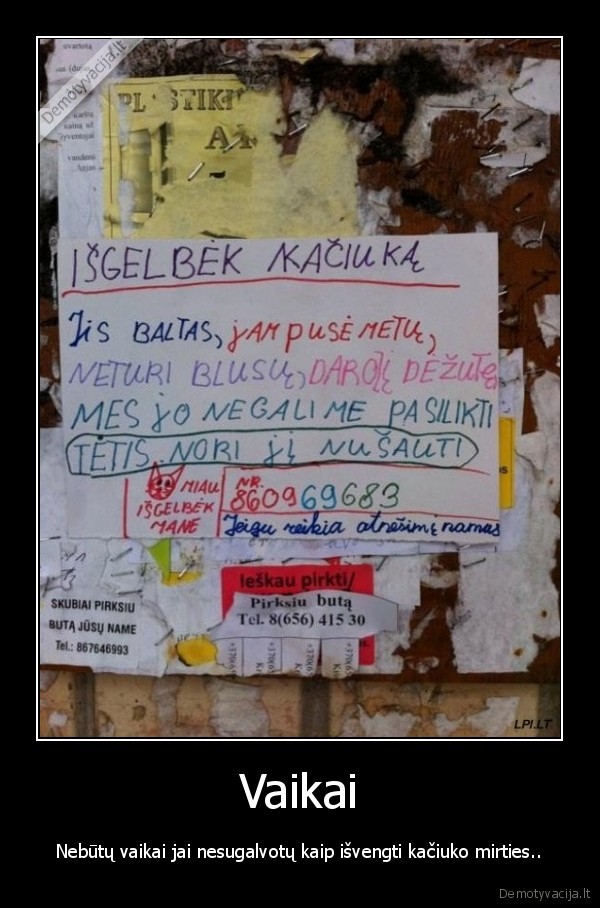 Demotyvacija.lt
uvartotą
PL STIKI
A
IŠGELBĖK KAČIUKĄ
JiS BALTAS, jAM pUSĖ METŲ,
NETURI BLUSŲ, DARO Į DĖŽUTĘ,
MES JO NEGALIME PASILIKTI
TĖTIS NORI JĮ NUŠAUTI
MIAU
IŠGELBĖK
MANE
NR.
860969683
Jeigu reikia atnešim į namus
Ieškau pirkti/
Pirksiu butą
Tel. 8(656) 415 30
SKUBIAI PIRKSIU
BUTĄ JŪSŲ NAME
Tel.: 867646993
LPI.LT
Vaikai
Nebūtų vaikai jai nesugalvotų kaip išvengti kačiuko mirties..
Demotyvacija.lt